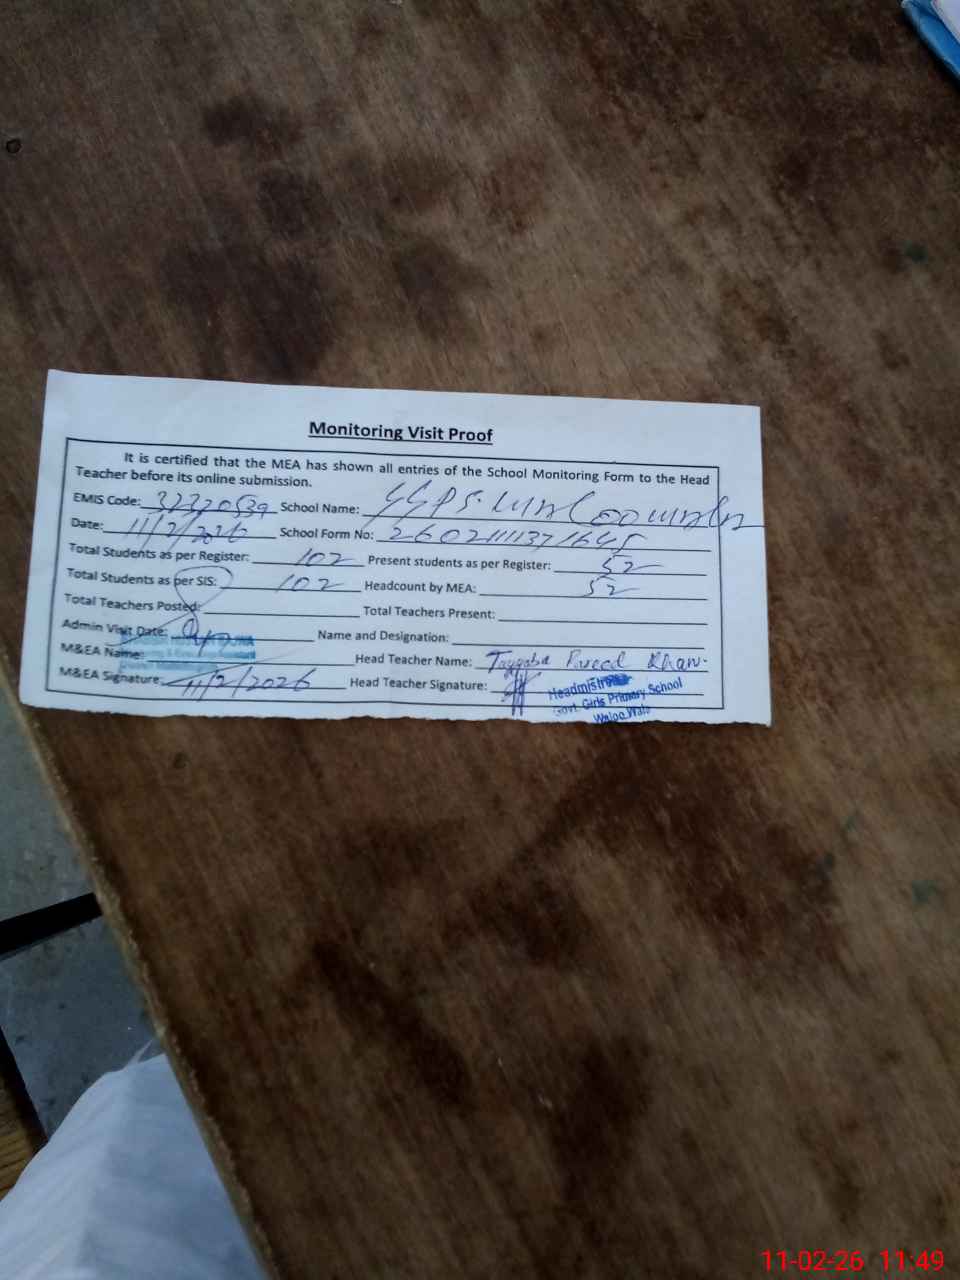 Monitoring Visit Proof
It is certified that the MEA has shown all entries of the School Monitoring Form to the Head
Teacher before its online submission.
EMIS Code: 32320539 School Name: GGPS. Waloo wala
Date: 11/2/2026 School Form No: 26021111371645
Total Students as per Register: 102 Present students as per Register: 52
Total Students as per SIS: 102 Headcount by MEA: 52
Total Teachers Posted: Total Teachers Present:
Admin Visit Date: Name and Designation:
M&EA Name: Head Teacher Name: Tayyaba Fareed Khan.
M&EA Signature: 11/2/2026 Head Teacher Signature:
Headmistress
Govt. Girls Primary School
Waloo Wala
11-02-26 11:49